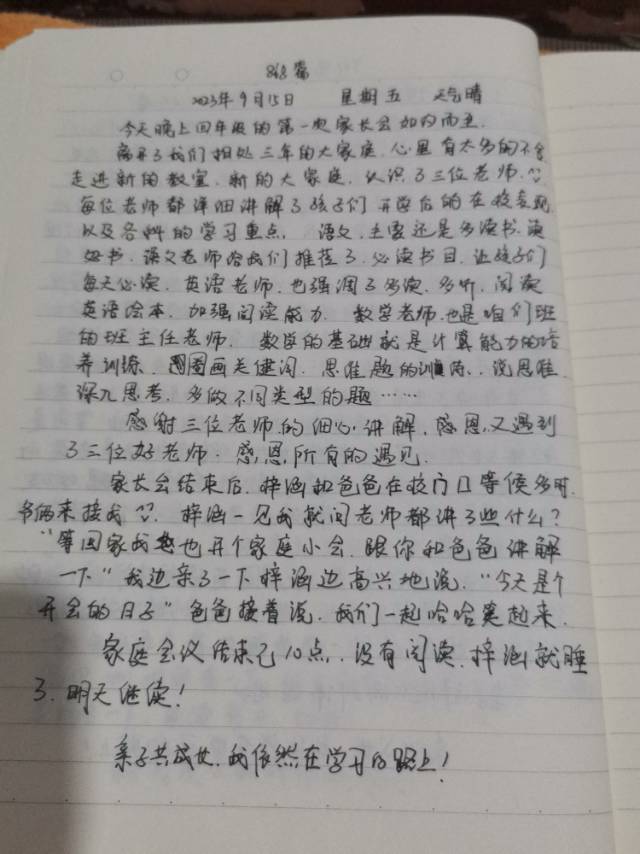 868篇
2023年9月15日 星期五 天气晴
今天晚上四年级的第一次家长会如约而至.
离开了我们相处三年的大家庭,心里有太多的不舍
走进新的教室,新的大家庭,认识了三位老师,^^
每位老师都详细讲解了孩子们开学后的在校表现
以及各科的学习重点, 语文,主要还是多读书,读
好书,语文老师给我们推荐了,必读书目,让孩子们
每天必读,英语老师,也强调了多读,多听,阅读
英语绘本,加强阅读能力. 数学老师,也是咱们班
的班主任老师, 数学的基础就是计算能力的培
养训练,圈圈画关键词,思维题的训练,说思维
深入思考,多做不同类型的题……
感谢三位老师的细心讲解,感恩,又遇到
了三位好老师.感恩,所有的遇见.
家长会结束后,梓涵和爸爸在校门口等候多时,
爷俩来接我^^. 梓涵一见我就问老师都讲了些什么?
“等回家我也开个家庭小会,跟你和爸爸讲解
一下”我边亲了一下梓涵边高兴地说,“今天是个
开会的日子”爸爸接着说,我们一起哈哈笑起来.
家庭会议结束已10点,没有阅读,梓涵就睡
了.明天继续!
亲子共成长,我依然在学习的路上!